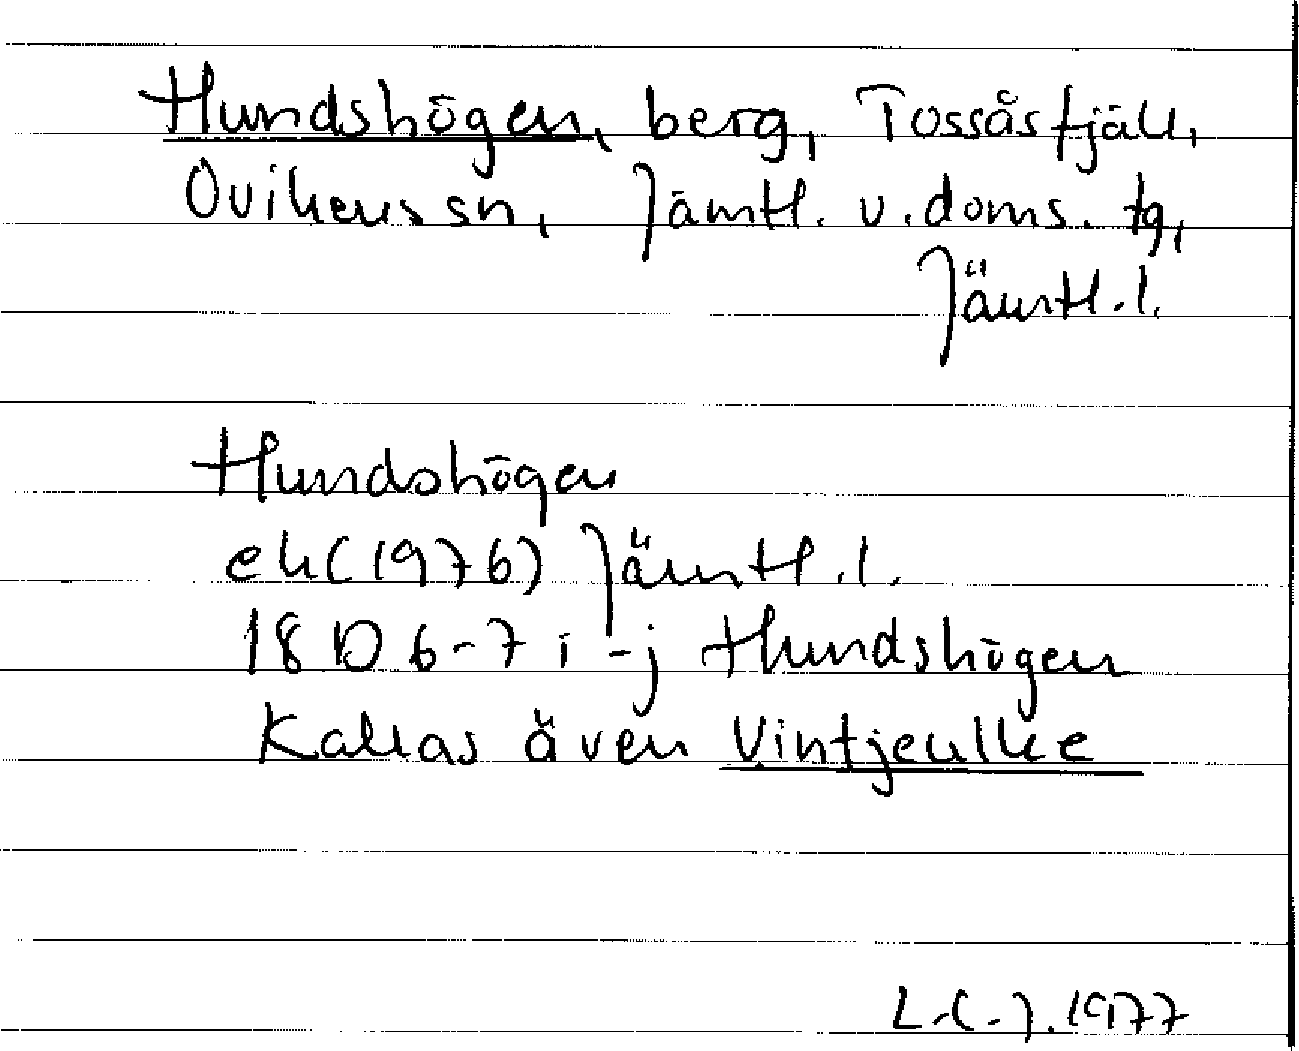 Hundshögen, berg, Tossåsfjäll,
Ovikens sn, Jämtl. v. doms. tg,
Jämtl. l.
Hundshögen
ek (1976) Jämtl. l.
18 D 6-7 i-j Hundshögen
Kallas även Vintjeulke
1977